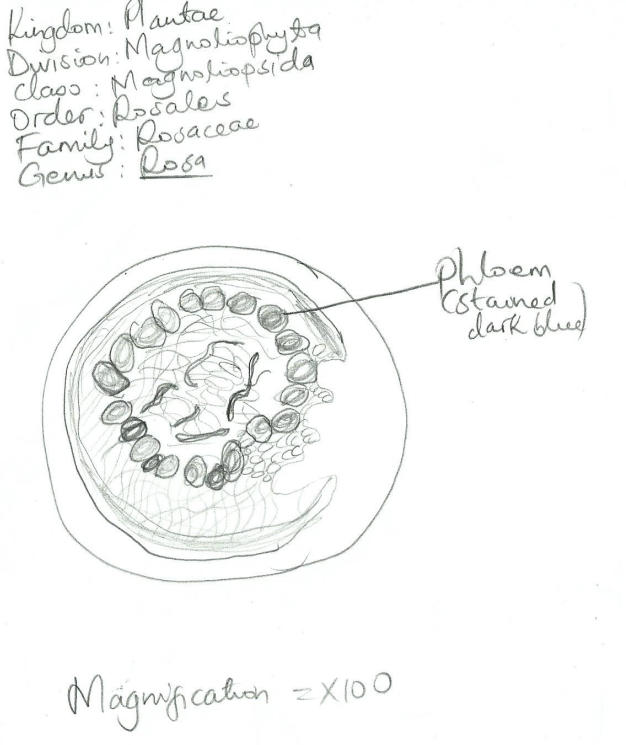 Kingdom: Plantae
Division: Magnoliophyta
Class: Magnoliopsida
Order: Rosales
Family: Rosaceae
Genus: Rosa
Phloem
(stained
dark blue)
Magnification = X100